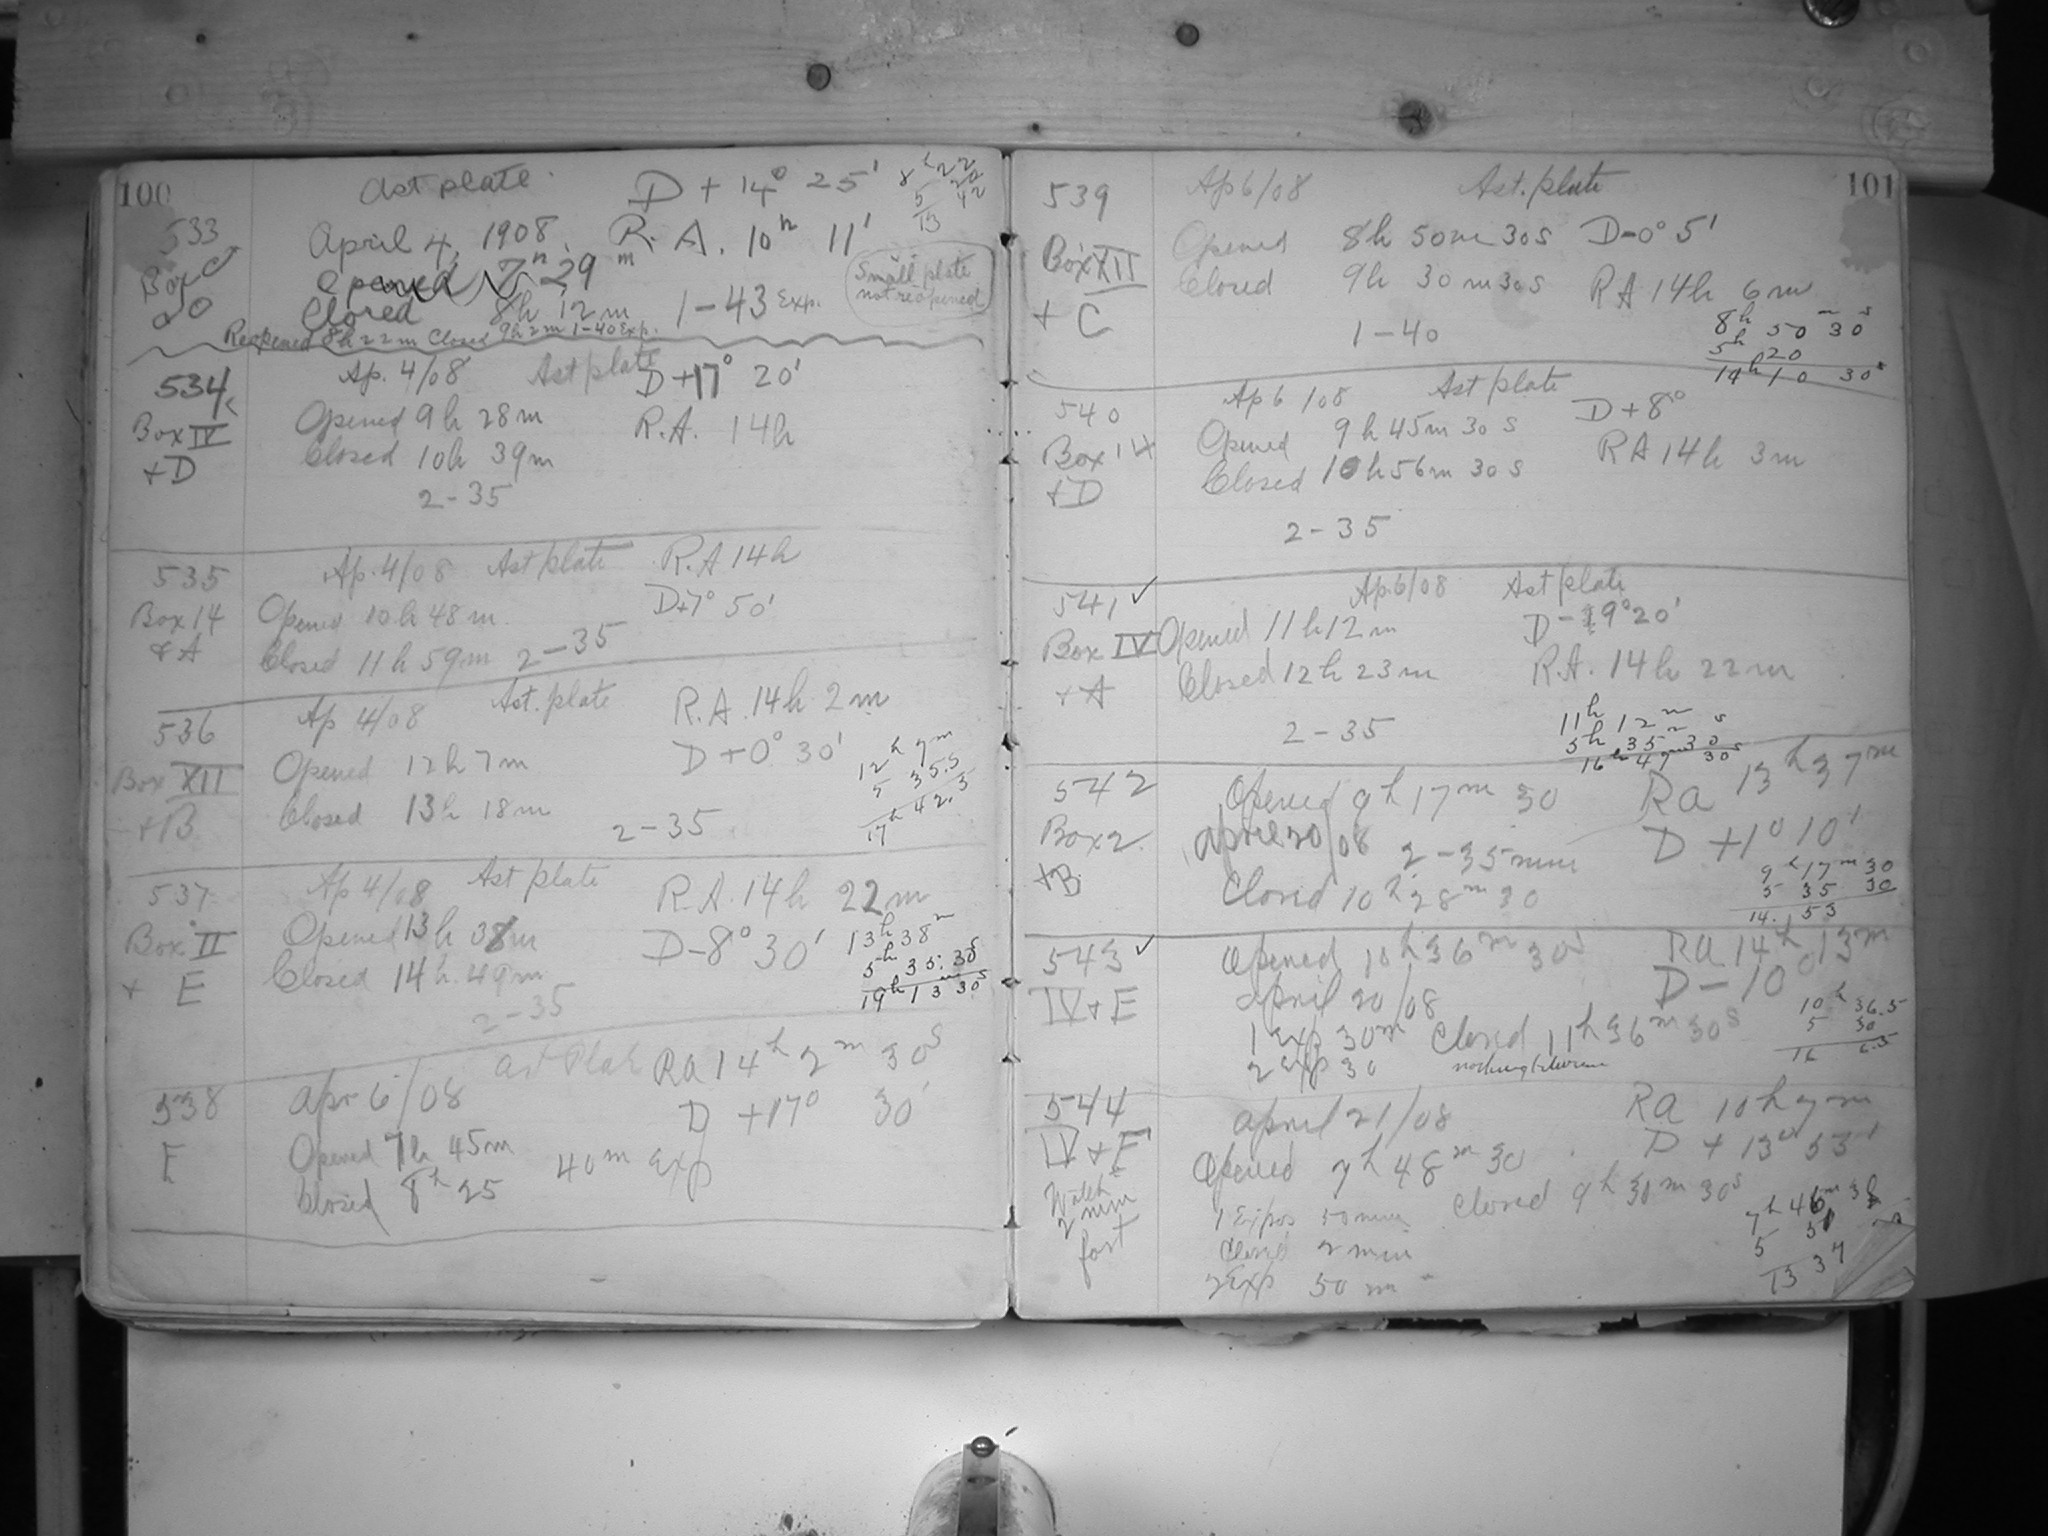 100
Ast plate
D + 14° 25'
8h 22
5 20
13 42
533
April 4, 1908. R. A. 10h 11'
Box
Opened 7h 29m
Small plate
not reopened
Closed 8h 12m 1-43 Exp.
Reopened 8h 22m Closed 9h 2m 1-40 Exp.
534
Ap. 4/08 Ast plate D+17° 20'
Box IV
Opened 9h 28m R.A. 14h
+D
Closed 10h 39m
2-35
535
Ap. 4/08 Ast plate R.A 14h
Box 14
Opened 10h 48m D+7° 50'
+A
Closed 11h 59m 2-35
536
Ap 4/08 Ast. plate R.A. 14h 2m
Box XII
Opened 12h 7m D+0° 30'
+B
Closed 13h 18m 2-35
12h 7m
5 35.5
17h 42.5
537
Ap 4/08 Ast plate R.A. 14h 22m
Box II
Opened 13h 38m D-8° 30'
+ E
Closed 14h 49m
2-35
13h 38m
5h 35: 30s
19h 13m 30s
538
Apr 6/08 Ast Plate Ra 14h 2m 30s
D +17° 30'
Opened 7h 45m 40m Exp
Closed 8h 25
101
539
Ap 6/08 Ast. plate
Box XII
Opened 8h 50m 30s D-0° 5'
+ C
Closed 9h 30m 30s RA 14h 6m
1-40
8h 50m 30s
5h 20
14h 10 30s
540
Ap 6/08 Ast plate
Box 14
Opened 9h 45m 30s D+8°
+D
Closed 10h 56m 30s RA 14h 3m
2-35
541 ✓
Ap. 6/08 Ast plate
Box IV
Opened 11h 12m D-9° 20'
+A
Closed 12h 23m R.A. 14h 22m
2-35
11h 12m
5h 35m 30s
16h 47m 30s
542
Opened 9h 17m 30 Ra 13h 37m
Box 2
April 20/08 2-35 mins D +1° 10'
+B
Closed 10h 28m 30
9h 17m 30
5 35 30
14. 53
543 ✓
Opened 10h 36m 30s Ra 14h 13m
IV+E
April 20/08 D-10°
1 Exp 30m Closed 11h 36m 30s
2 Exp 30 nothing between
10h 36.5
5 30
16 6.5
544
April 21/08 Ra 10h 7m
IV+E
Opened 7h 48m 30 D + 13° 53'
Watch
2 min
fast
1 Expos 50 mins Closed 9h 30m 30s
Closed 2 min
2 Exp 50 m
7h 46m 30
5 51
13 37